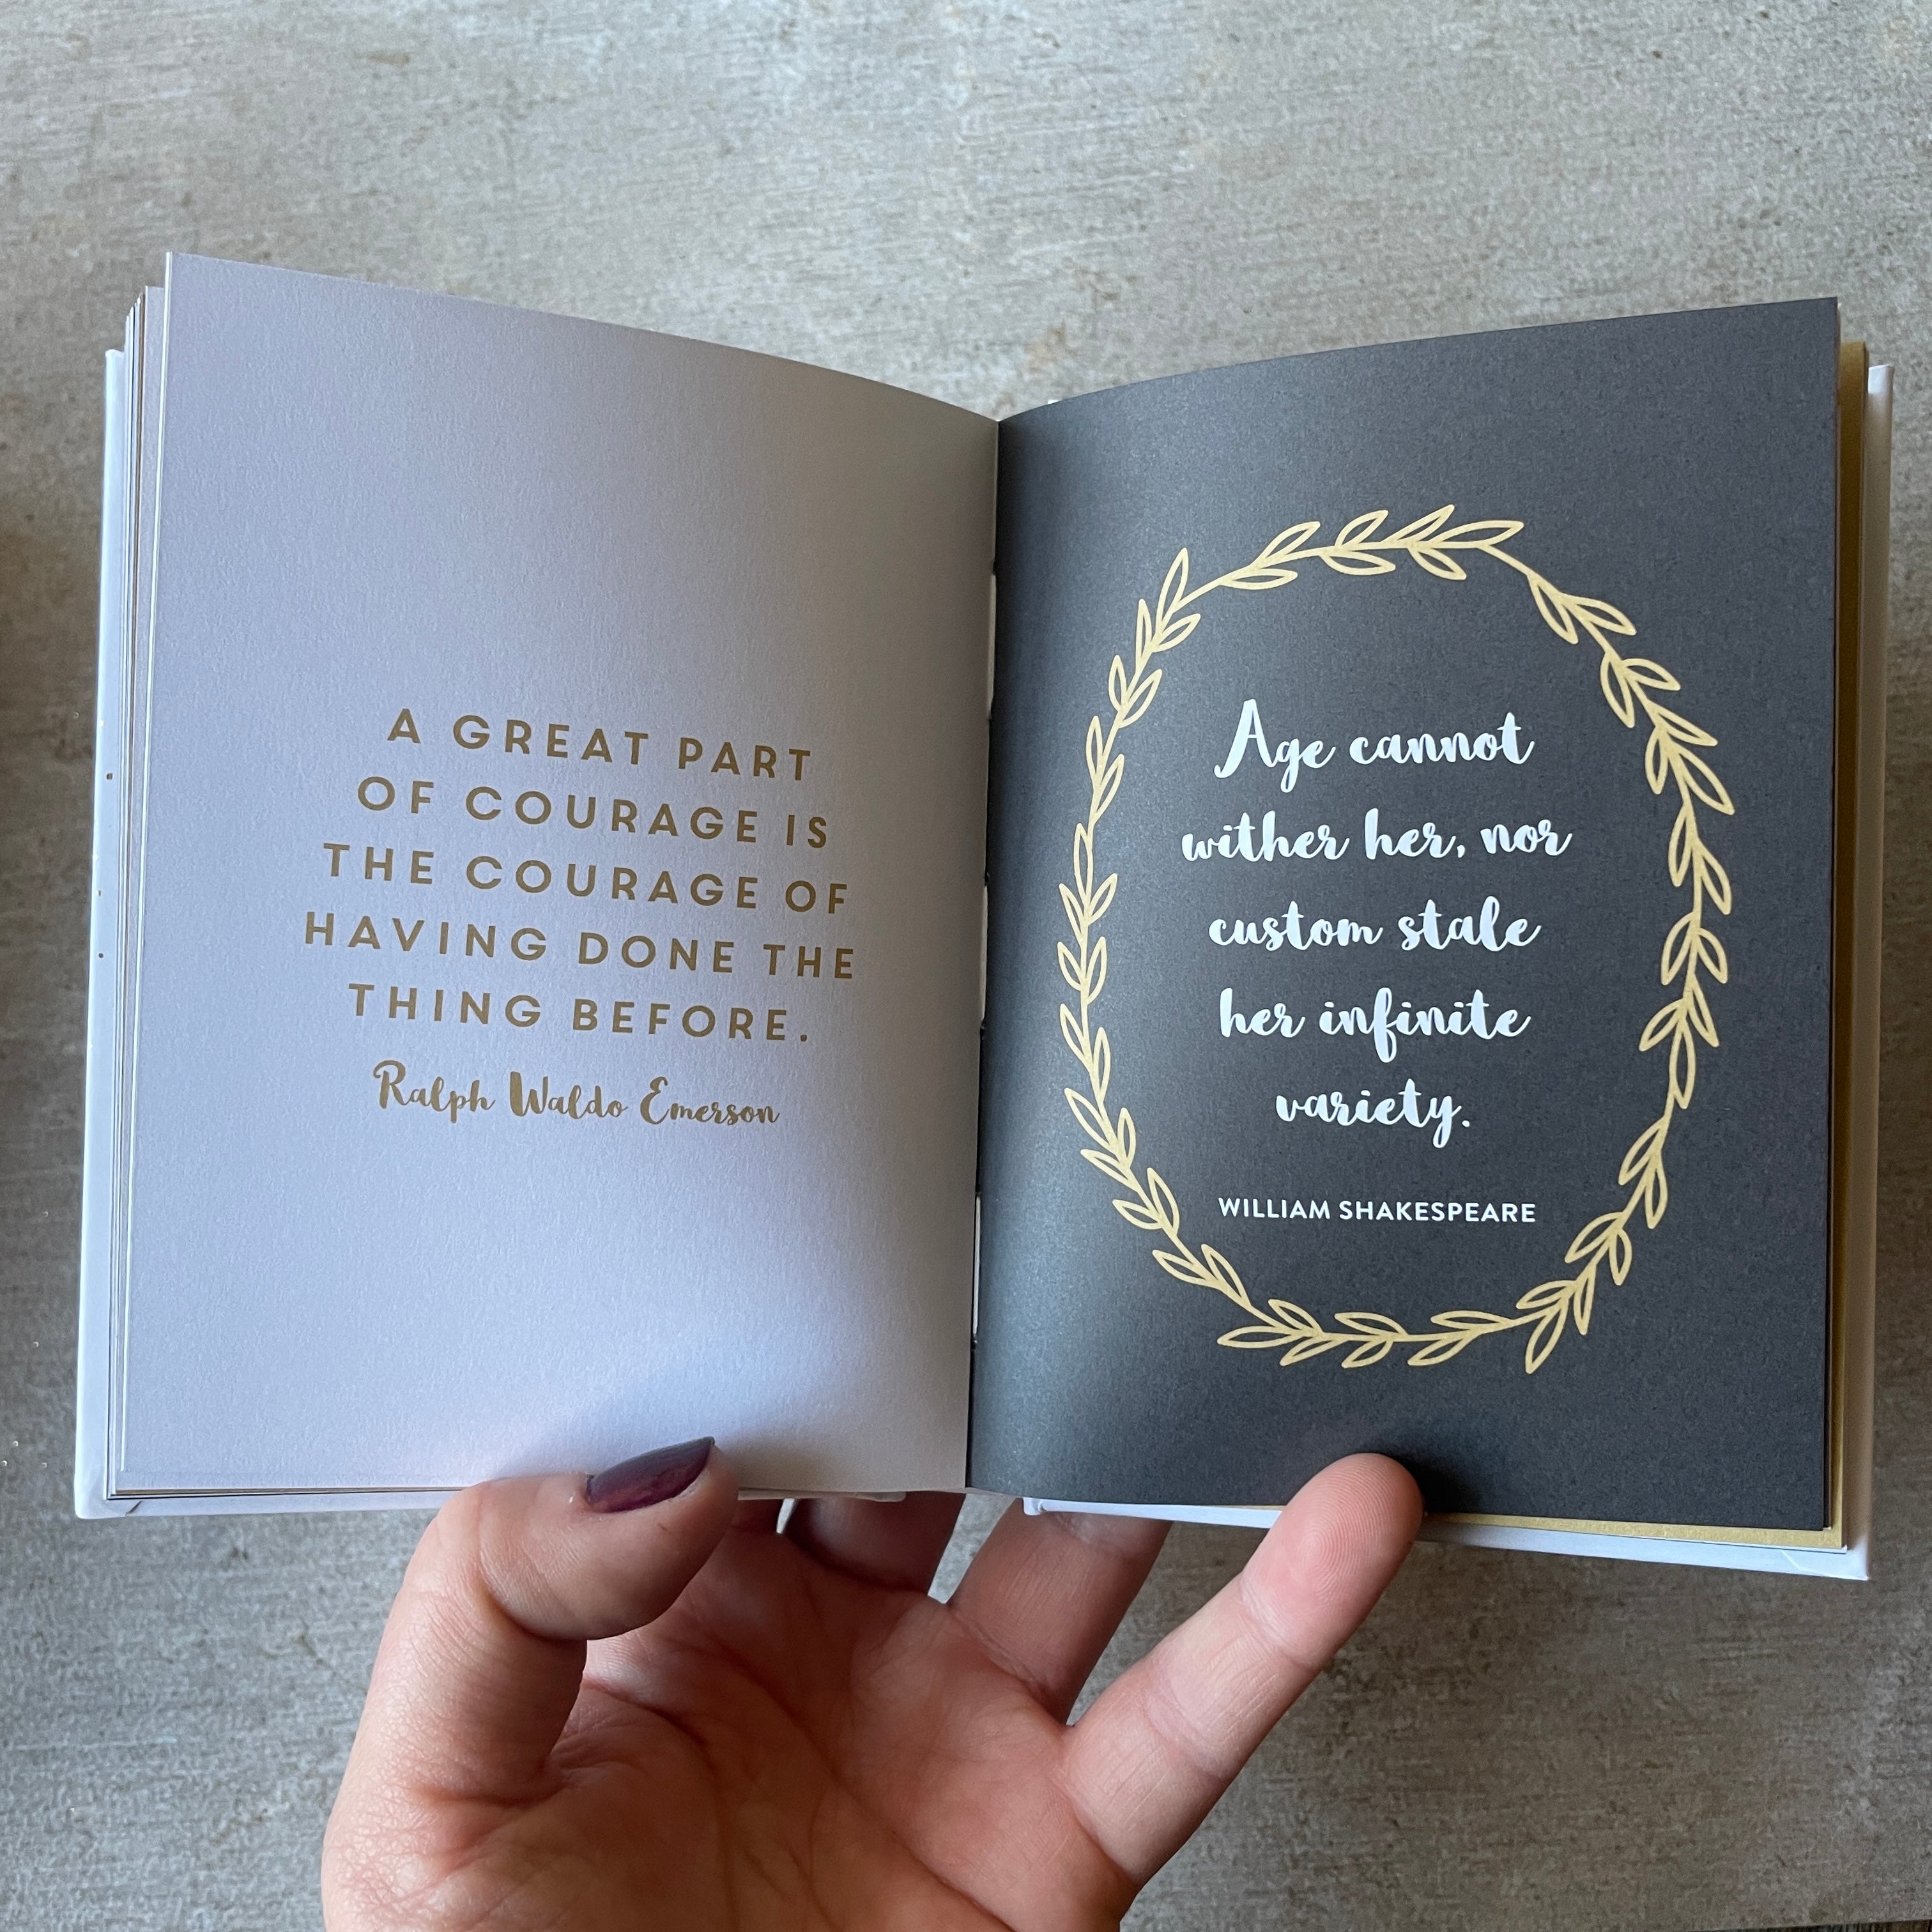 A GREAT PART
OF COURAGE IS
THE COURAGE OF
HAVING DONE THE
THING BEFORE.
Ralph Waldo Emerson
Age cannot
wither her, nor
custom stale
her infinite
variety.
WILLIAM SHAKESPEARE